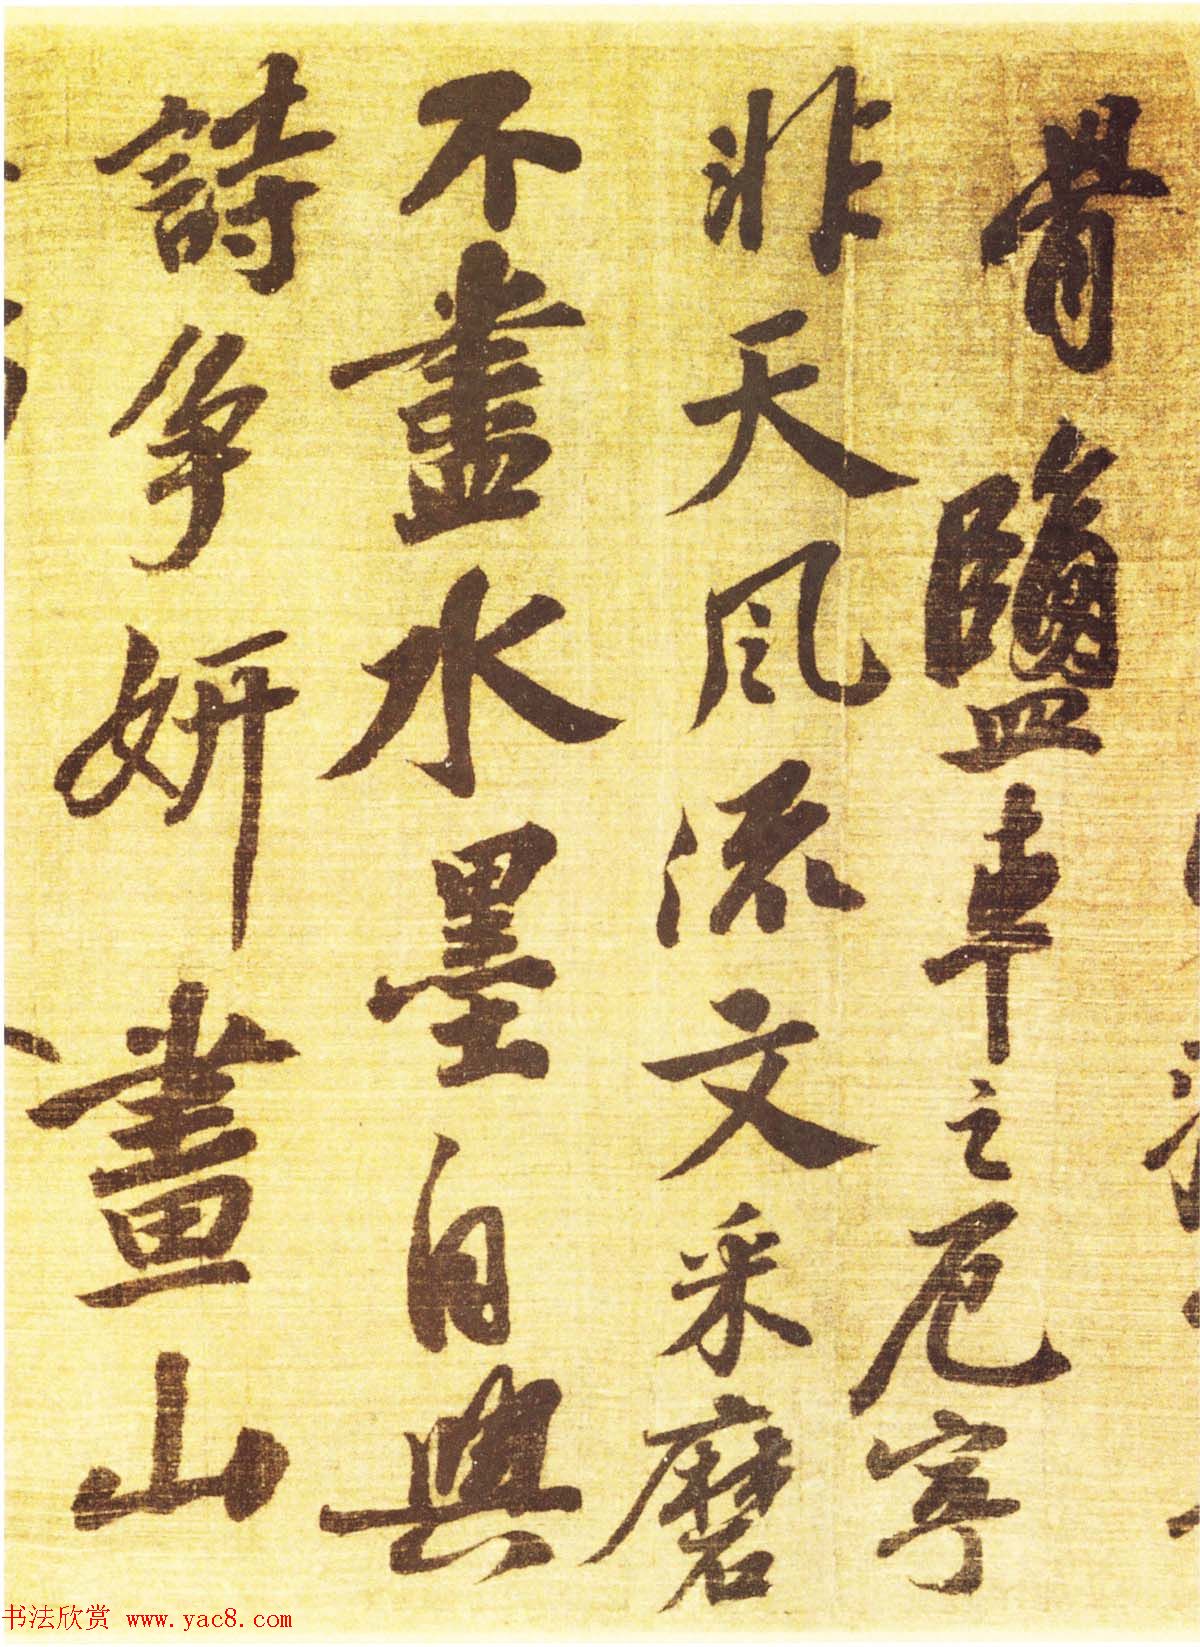 骨鹽車之厄寧
非天風流文采磨
不盡水墨自與
詩争妍畫山
书法欣赏 www.yac8.com